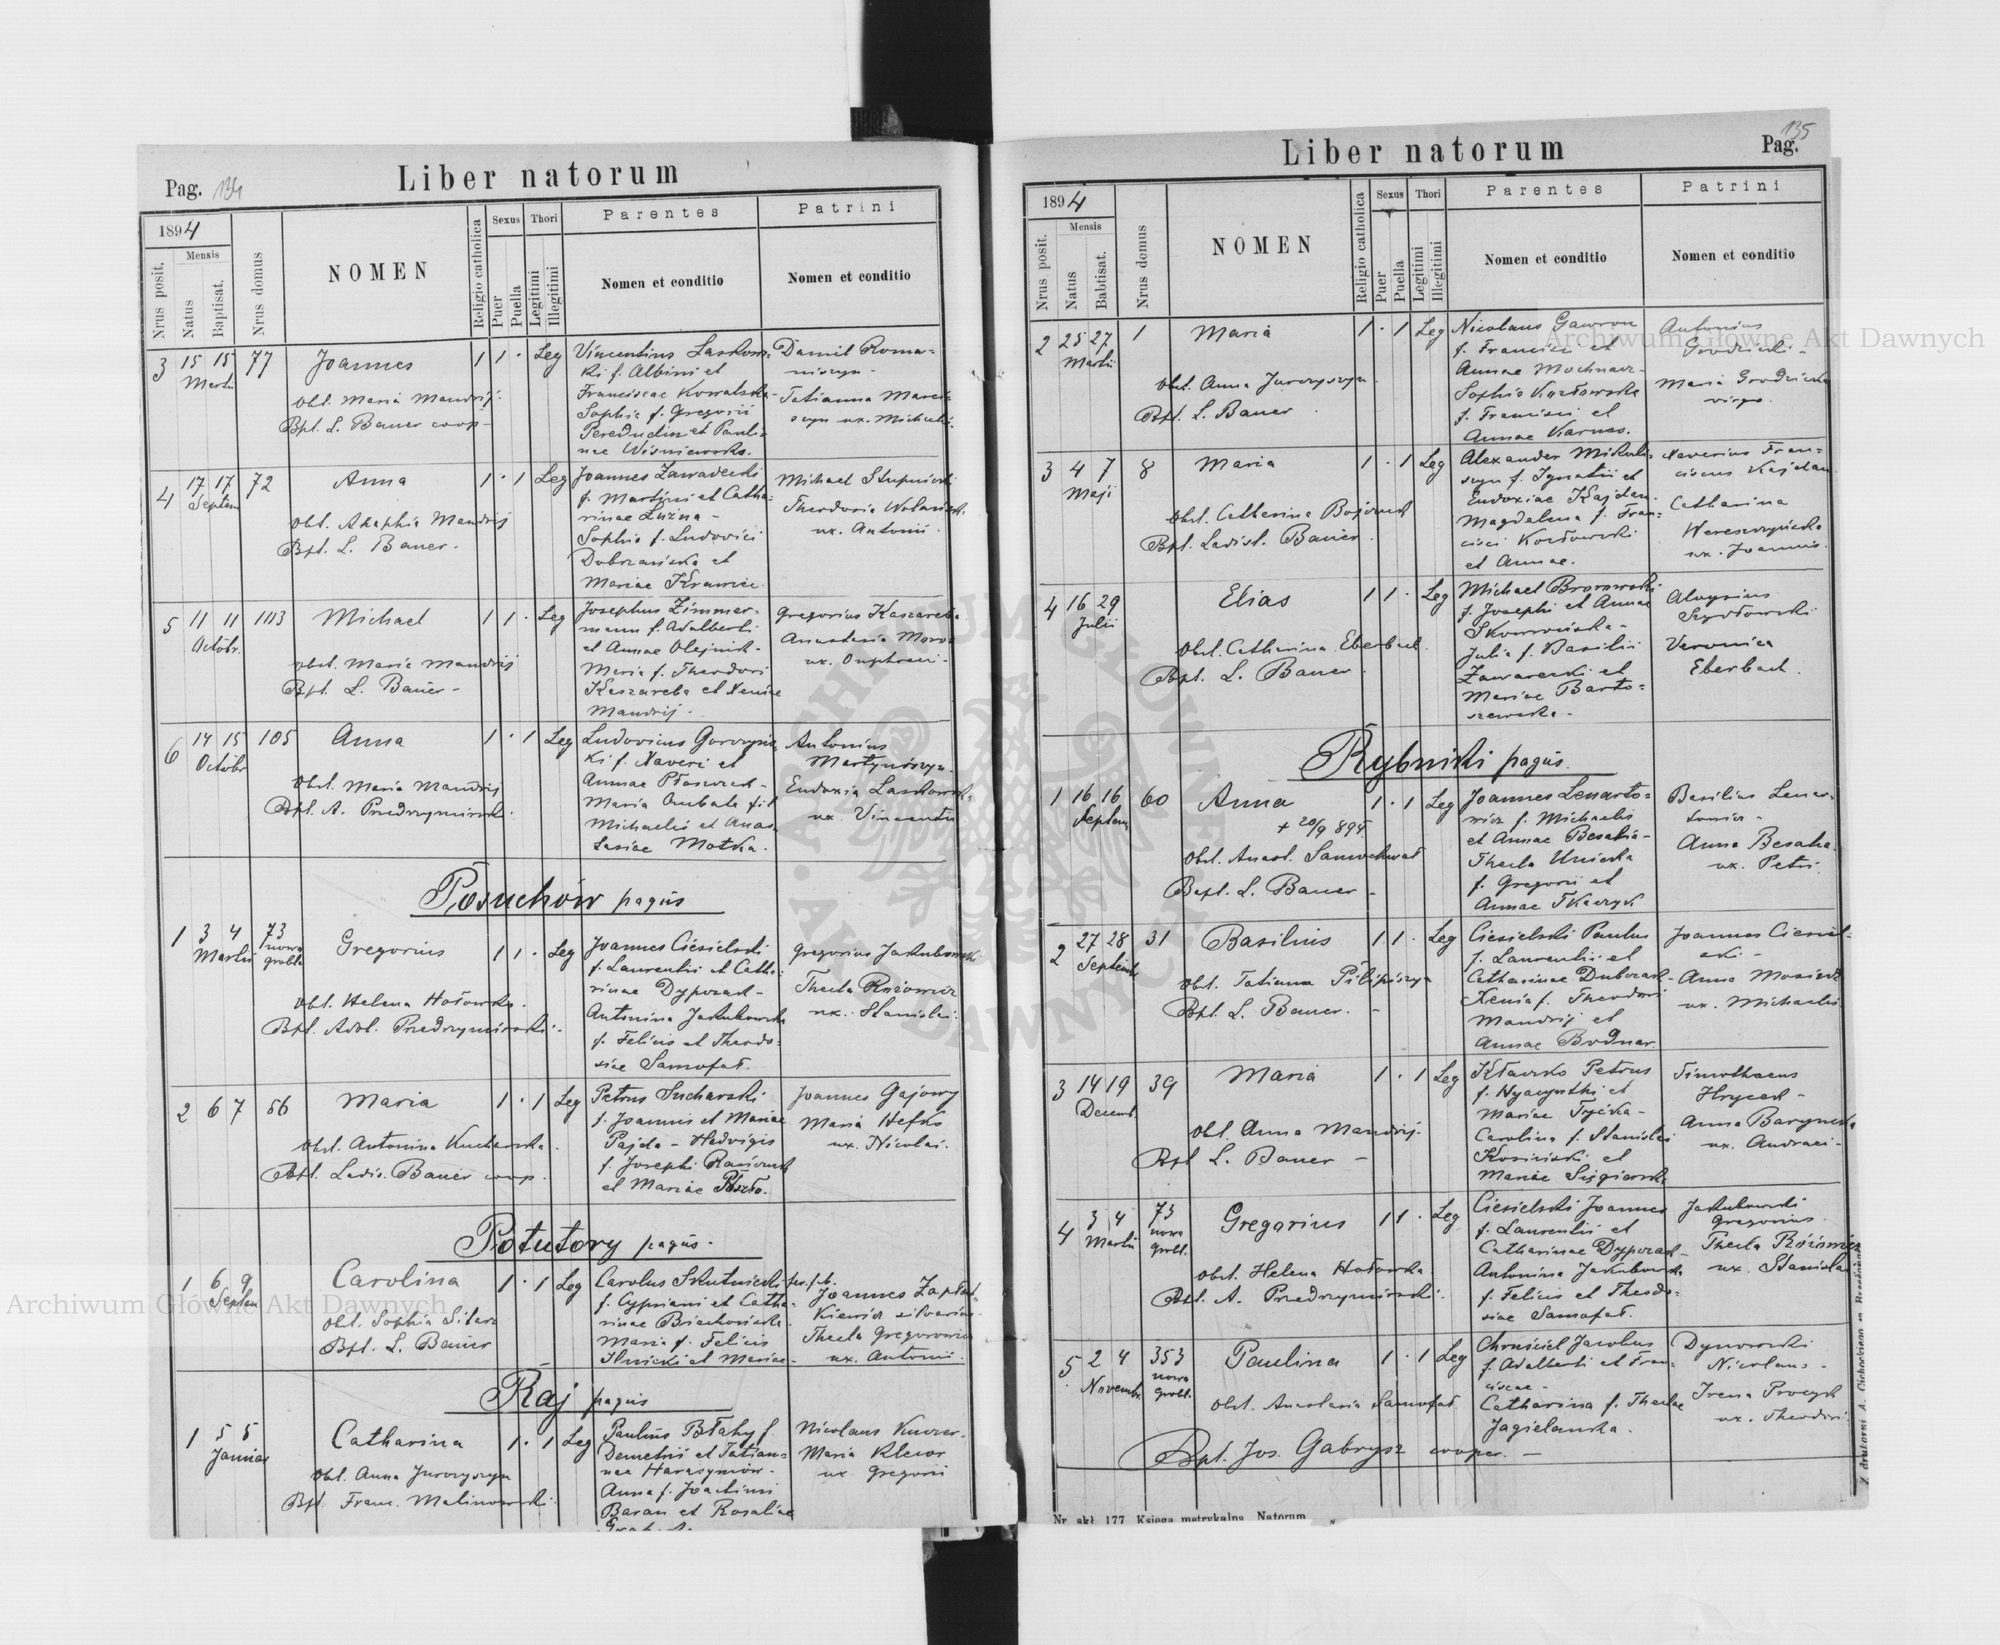 Pag. 134
Liber natorum
1894
Nrus posit.
Mensis
Natus
Baptisat.
Nrus domus
NOMEN
Religio catholica
Sexus
Puer
Puella
Thori
Legitimi
Illegitimi
Parentes
Nomen et conditio
Patrini
Nomen et conditio
3 15 15 77 Joannes 1 1 · Leg
Martii
Obst. Maria Mandrij.
Bpt. L. Bauer coop-
Vincentius Laskows-
ki f. Albini et
Franciscae Kowalska-
Sophia f. Gregorii
et Pauli-
nae Wiśniewska.
Daniel Roma-
niszyn-
Tatianna
ux. Michaeli.
4 17 17 72 Anna 1 · 1 Leg
Septem
Obst. Ahaphia Mandrij
Bpt. L. Bauer-
Joannes Zawadecki
f. Martini et Catha-
rinae Luzna-
Sophia f. Ludovici
Dobrzańska et
Mariae Krawiec.
Michael Stupnicki
Theodoria
ux. Antonii.
5 11 11 103 Michael 1 1 · Leg
Octobr.
Obst. Maria Mandrij
Bpt. L. Bauer-
Josephus Zimmer-
mann f. Adalberti
et Annae Olejnik-
Maria f. Theodori
Kaszareba et Xeniae
Mandrij-
Gregorius Kaszareba
Anastasia Moroz
ux. Onuphrii-
6 14 15 105 Anna 1 · 1 Leg
Octobr
Obst. Maria Mandrij
Bpt. A. Przedrzymirski.
Ludovicus
ki f. Xaveri et
Annae
Maria f.
Michaelis et Anas-
tasiae Motka.
Antonius
Martyniszyn.
Eudoxia Laskowsk-
ux. Vincentii
Posuchów pagus
1 3 4 73 Gregorius 1 1 · Leg
Martii nowa
grobla
Obst. Helena Hołowska.
Bpt. Adol. Przedrzymirski.
Joannes Ciesielski
f. Laurentii et Catha-
rinae Dypczak-
Antonina Jakubowska
f. Felicis et Theodo-
siae Samofał.
Gregorius Jakubowski
Thecla Rózowicz
ux. Stanislai.
2 6 7 56 Maria 1 · 1 Leg
Obst. Antonina Kucharska.
Bpt. Ladis. Bauer coop.
Petrus Sucharski
f. Joannis et Mariae
Pajda - Hedvigis
f. Josephi
et Mariae
Joannes Gajowy
Maria Hefko
ux. Nicolai.
Potutory pagus.
1 6 9 Carolina 1 · 1 Leg
Septem
Obst. Sophia Sitarz
Bpt. L. Bauer
Carolus Skutnicki
f. Cypriani et Catha-
rinae
Maria f. Felicis
Ilnicki et Mariae-
Joannes Zapłat-
Thecla Gregorowicz
ux. Antonii.
Raj pagus
1 5 5 Catharina 1 · 1 Leg
Januar
Obst. Anna Jurczyszyn
Bpt. Franc. Malinowski.
Paulus Błahy f.
Demetrii et Tatian-
nae Harasymów-
Anna f. Joachimi
Baran et Rosaliae
Nicolaus
Maria
ux Gregorii
Pag. 135
Liber natorum
1894
Nrus posit.
Mensis
Natus
Babtisat.
Nrus domus
NOMEN
Religio catholica
Sexus
Puer
Puella
Thori
Legitimi
Illegitimi
Parentes
Nomen et conditio
Patrini
Nomen et conditio
2 25 27 1 Maria 1 · 1 Leg
Martii
Obst. Anna Jurczyszyn
Bpt. L. Bauer.
Nicolaus Gawron
f. Francisci et
Annae Mochnacz-
Sophia Kozłowska
f. Francisci et
Annae Karnas.
Antonius
Grodzicki-
Maria Grodzicka
virgo.
3 4 7 8 Maria 1 · 1 Leg
Maji
Obst. Catherina Bojczuk
Bpt. Ladisl. Bauer.
Alexander Mikuli-
szyn f. Ignatii et
Eudoxiae Kajdan.
Magdalena f. Fran-
cisci Kozłowski
et Annae.
Xaverius Fran-
ciscus Kajdan
Catharina
Wereszczyńska
ux. Joannis.
4 16 29 Elias 1 1 · Leg
Julii
Obst. Catharina Eberbach.
Bpt. L. Bauer.
Michael Brozowski
f. Josephi et Annae
Skowrońska-
Julia f. Basilii
et
Mariae Barto-
szewska-
Aloysius
Szydłowski
Veronica
Eberbach.
Rybniki pagus.
1 16 16 60 Anna 1 · 1 Leg
Septem
+ 20/9 894
Obst. Anast. Samochwał
Bapt. L. Bauer-
Joannes Lenarto-
wicz f. Michaelis
et Annae Besaha-
Thecla Unicka
f. Gregorii et
Annae Tkaczyk
Basilius Lenar-
towicz-
Anna Besaha
ux. Petri.
2 27 28 31 Basilius 1 1 · Leg
Septemb
Obst. Tatiana Pilipiszyn
Bpt. L. Bauer.-
Ciesielski Paulus
f. Laurentii et
Catharinae Dubczak-
Xenia f. Theodori
Mandrij et
Annae Bodnar.
Joannes Ciesiel-
ski-
Anna
ux. Michaelis.
3 14 19 39 Maria 1 · 1 Leg
Decemb.
Obst. Anna Mandrij-
Bpt L. Bauer-
Petrus
f. Hyacynthi et
Mariae
Carolina f. Stanislai
Kosiński et
Mariae
Timotheus
Hrycak-
Anna
ux. Andreae-
4 3 4 73 Gregorius 1 1 · Leg
Martii nowa
grobl.
Obst. Helena Hołowska
Bpt. A. Przedrzymirski.
Ciesielski Joannes
f. Laurentii et
Catharinae Dypczak-
Antonina Jakubowska
f. Felicis et Theodo-
siae Samofał.
Jakubowski
Gregorius
Thecla Rózowicz
ux. Stanislai
5 2 4 353 Paulina 1 · 1 Leg
Novemb. nowa
grobl.
Obst. Anastasia Samofał
Bpt. Jos. Gabrysz cooper.-
Chruściel Jacobus
f. Adalberti et Fran-
ciscae-
Catharina f. Theclae
Jagielańska.
Dynowski
Nicolaus-
Irena Procyk
ux. Theodori.
Nr. skł. 177. Księga metrykalna. Natorum
Z drukarni A. Cichockiego
Archiwum Główne Akt Dawnych
Archiwum Główne Akt Dawnych
ARCHIWUM GŁÓWNE AKT DAWNYCH